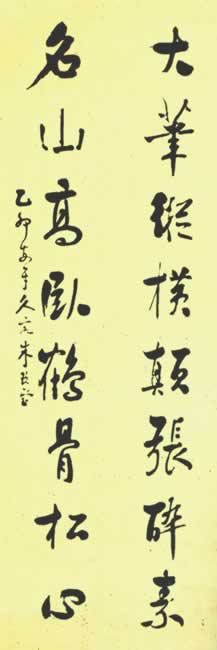 大筆縱橫顛張醉素
名山高臥鶴骨松心
乙卯